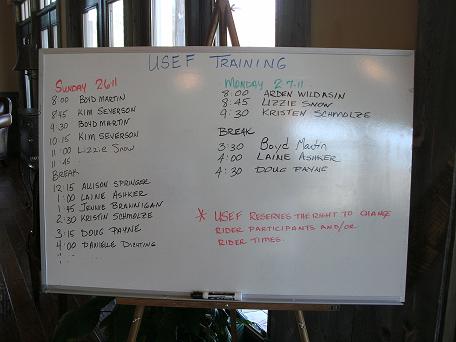 USEF TRAINING
SUNDAY 26TH
8:00 BOYD MARTIN
8:45 KIM SEVERSON
9:30 BOYD MARTIN
10:15 KIM SEVERSON
11:00 Lizzie Snow
11:45
BREAK
12:15 ALLISON SPRINGER
1:00 LAINE ASHKER
1:45 JENNIE BRANNIGAN
2:30 KRISTIN SCHMOLZE
3:15 DOUG PAYNE
4:00 DANIELLE
MONDAY 27TH
8:00 ARDEN WILDASIN
8:45 LIZZIE SNOW
9:30 KRISTEN SCHMOLZE
BREAK
3:30 Boyd Martin
4:00 LAINE ASHKER
4:30 DOUG PAYNE
* USEF RESERVES THE RIGHT TO CHANGE
RIDER PARTICIPANTS AND/OR
RIDER TIMES.